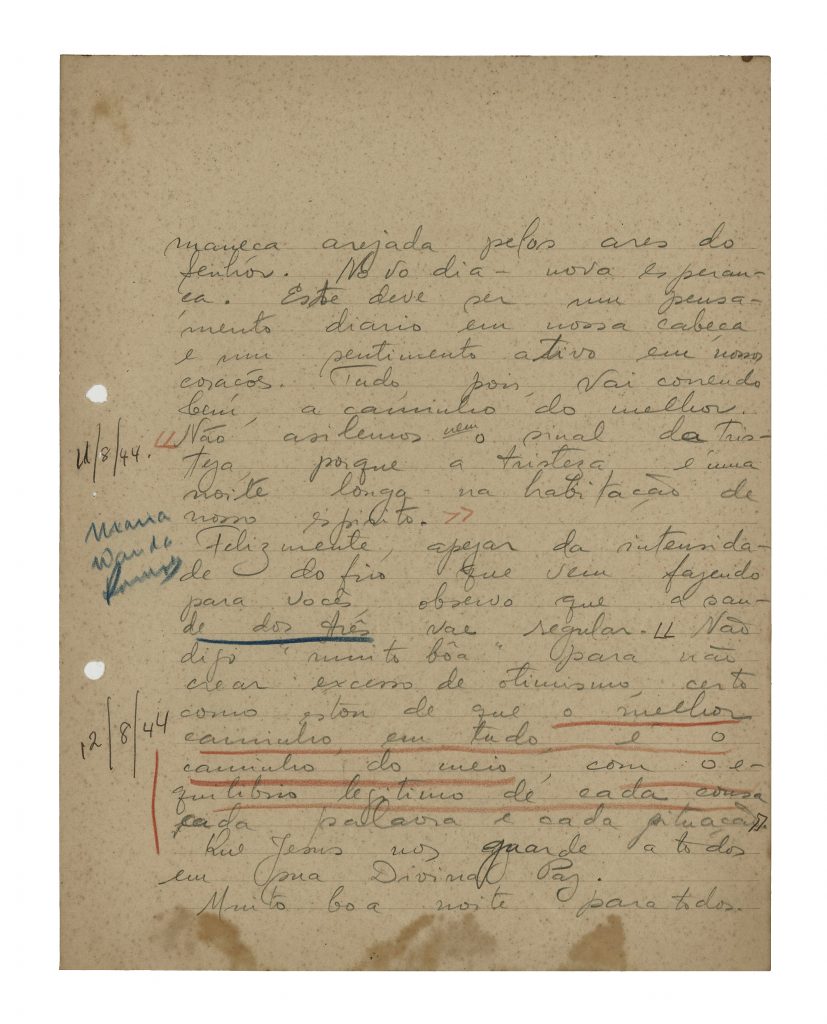 maneca arejada pelos ares do
Senhôr. Novo dia - nova esperan-
ca. Este deve ser um pensa-
mento diario em nossa cabeca
e um sentimento ativo em nosso
coracós. Tudo pois, vai correndo
bem, a caminho do melhor.
11/8/44. "Não asilemos nem o sinal da tris-
teza, porque a tristeza é uma
noite longa na habitação de
nosso espirito."
Maria
Wanda
Felizmente, apezar da intensida-
de do frio que vem fazendo
para vocês, observo que a sau-
de dos três vae regular. "Não
digo "muito bôa" para não
crear excesso de otimismo, certo
como estou de que o melhor
12/8/44
caminho, em tudo, é o
caminho do meio, com o e-
quilibrio legitimo de cada cousa
cada palavra e cada situação".
Que Jesus nos guarde a todos
em sua Divina Paz.
Muito boa noite para todos.